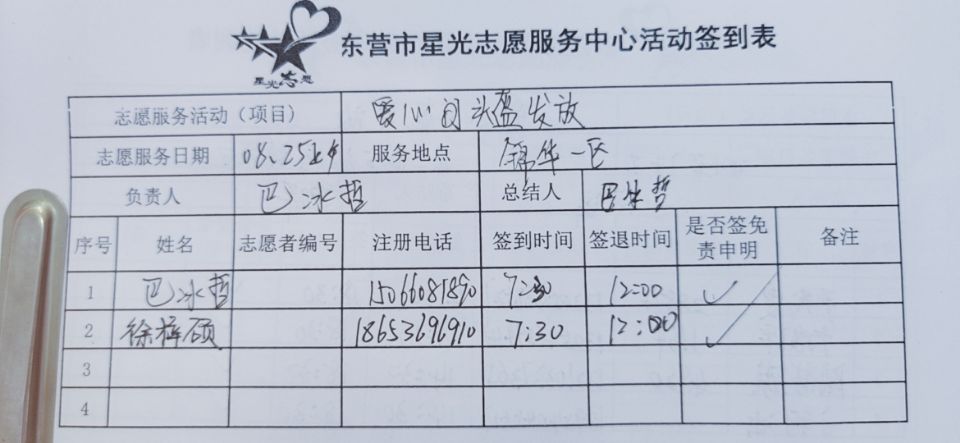 星光志愿
东营市星光志愿服务中心活动签到表
志愿服务活动（项目） 爱心 头盔发放
志愿服务日期 08.25 服务地点 锦华一区
负责人 巴冰哲 总结人 巴冰哲
序号 姓名 志愿者编号 注册电话 签到时间 签退时间 是否签免责申明 备注
1 巴冰哲 15066081890 7:30 12:00 ✓
2 徐梓硕 18653696910 7:30 12:00 ✓
3
4